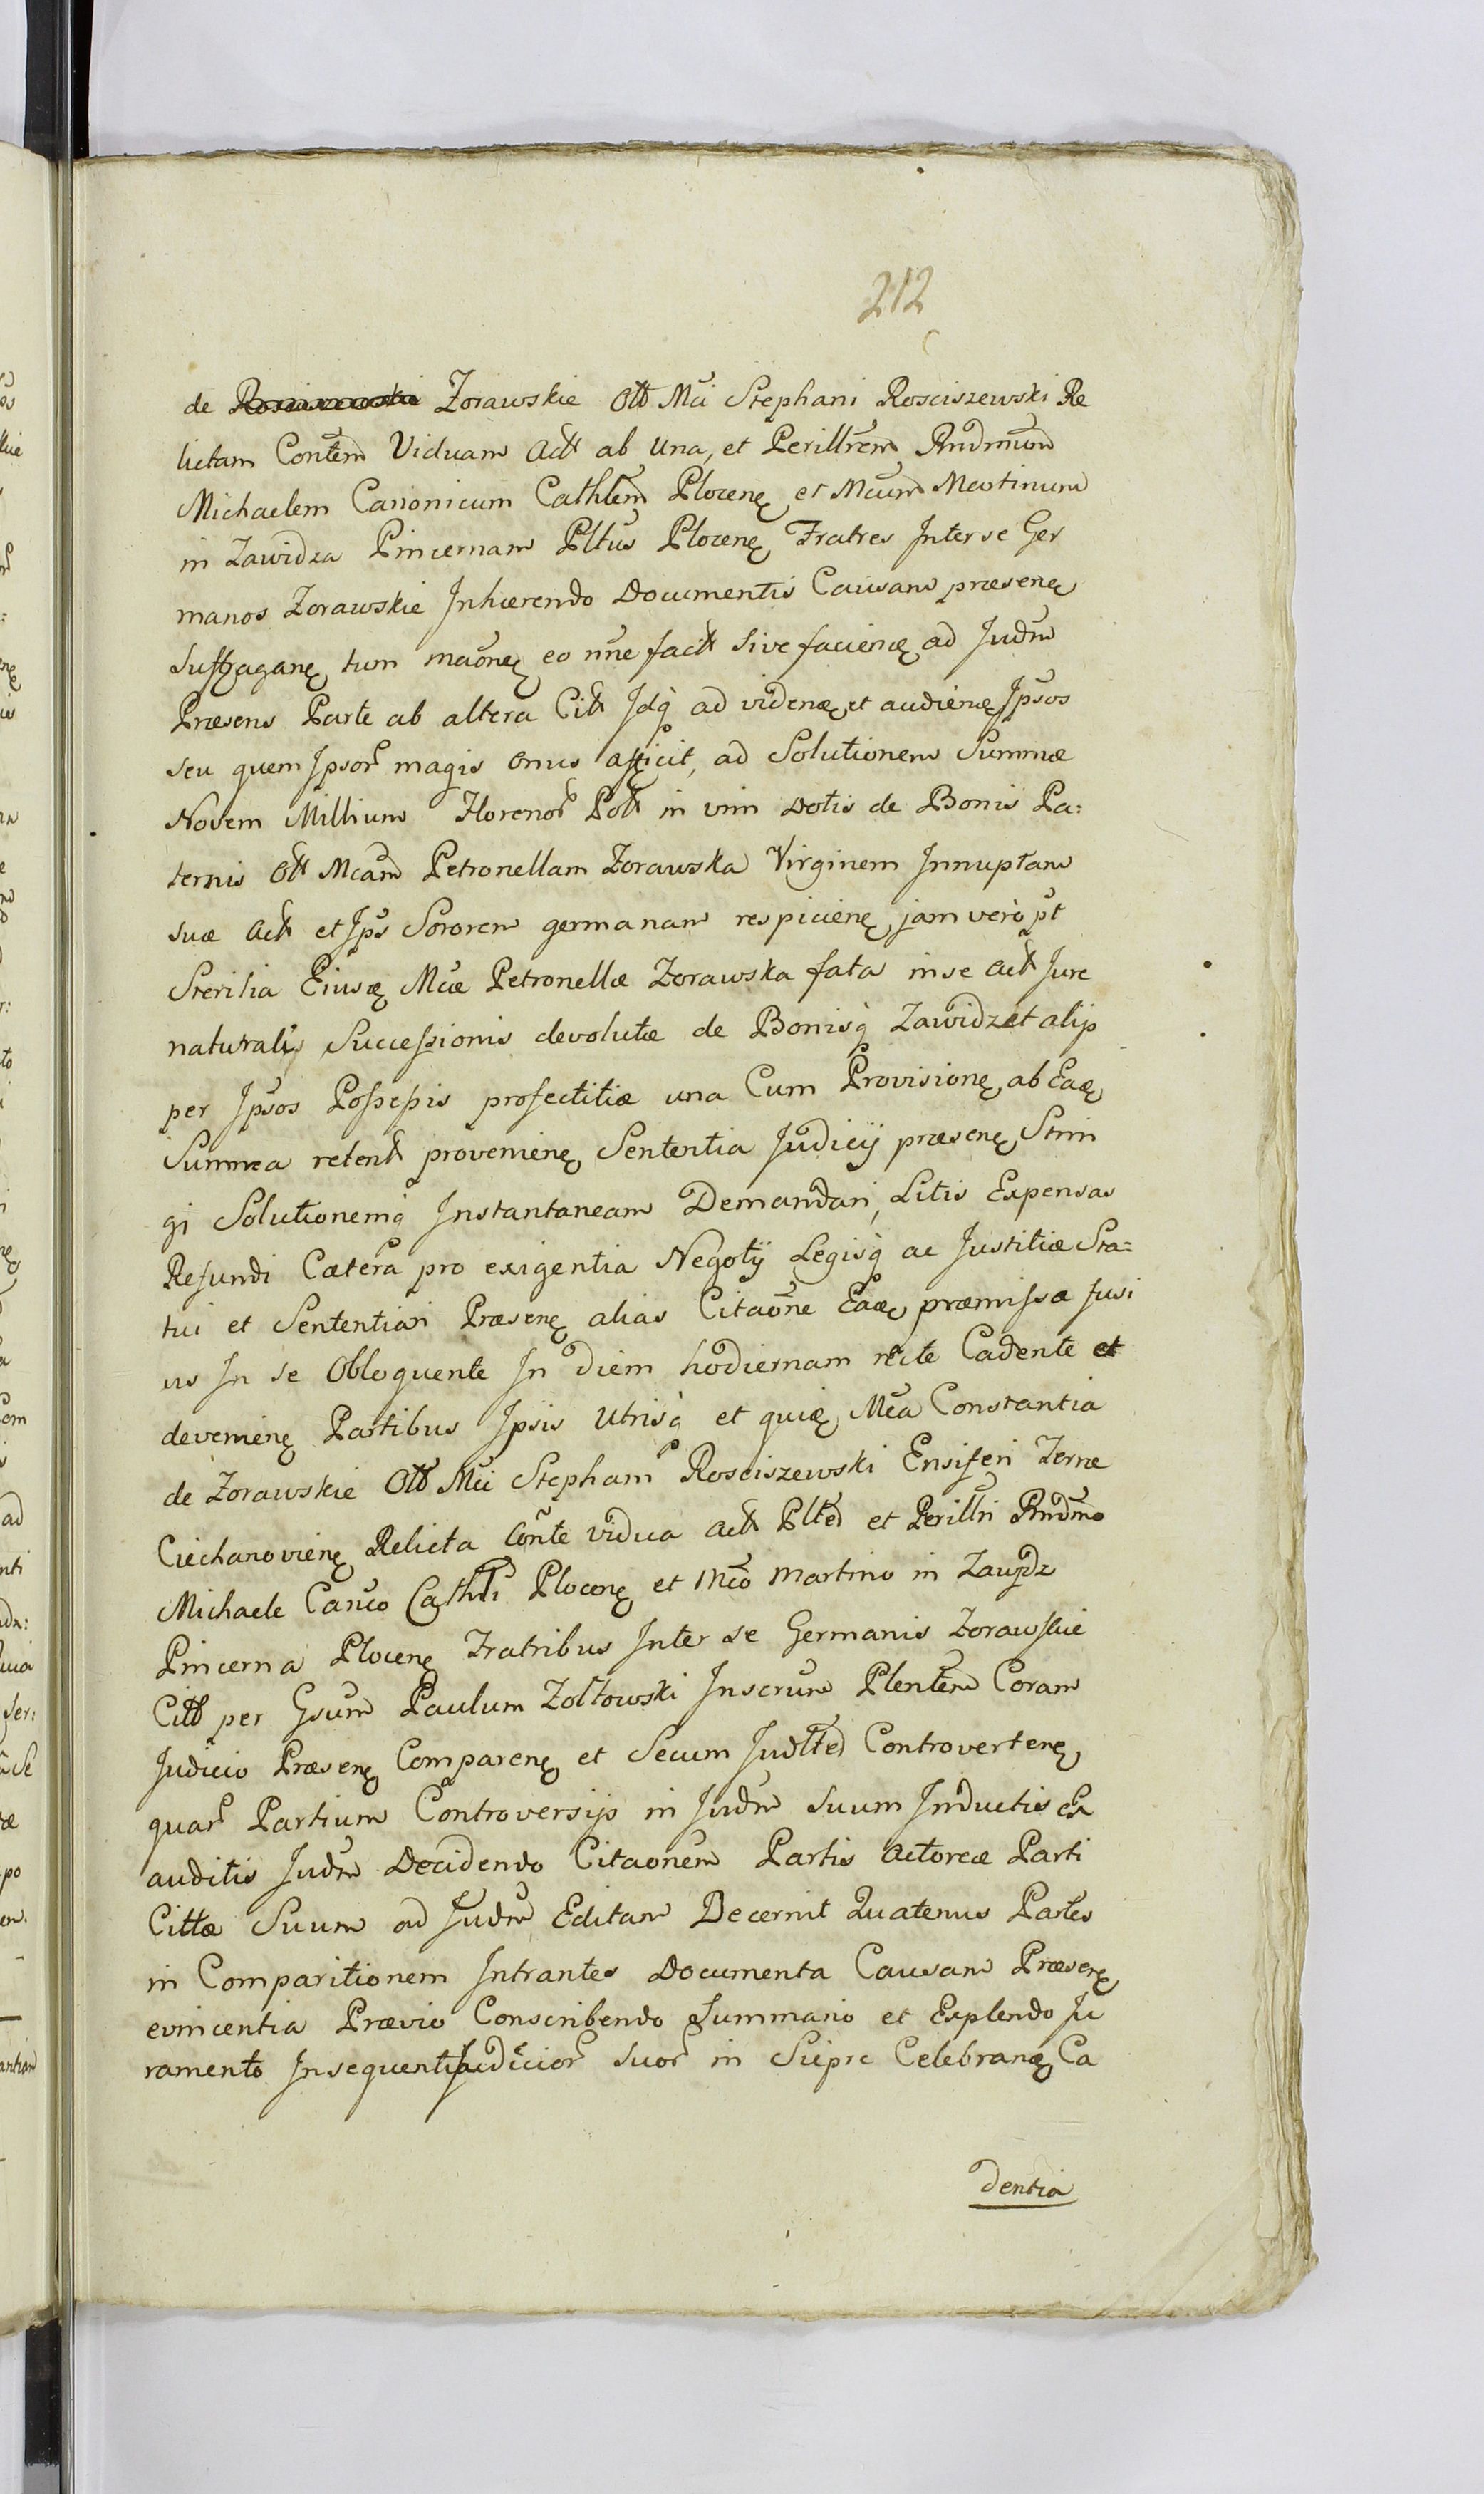 212
de Rosciszewski Zorawskie Olt Mci Stephani Rosciszewski Re
lictam Contem Viduam Act ab Una, et Perillrem Rndmum
Michaelem Canonicum Cathlem Plocenę et Mcum Martinum
in Zawidza Pincernam Pltus Plocenę Fratres Inter se Ger
manos Zorawskie Inhærendo Documentis Causam præsenę
suffraganę tum maonę eo nne fact sive facienę ad Judm
Præsens Parte ab altera Citt Idq ad videnę et audienę Ipsos
seu quem Ipsor magis onus afficit, ad Solutionem Summæ
Novem Millium Florenor Poll in vim Dotis de Bonis Pa:
ternis Olt Mcam Petronellam Zorawska Virginem Innuptam
suæ Act et Ips Sororem germanam respicienę, jam vero pt
Sterilia Eiusę Mcæ Petronellæ Zorawska fata in se Act Jure
naturalis Successionis devolutæ de Bonisq Zawidz et alijs
per Ipsos Possessis profectitiæ una Cum Provisionę ab Eaę
Summa retent provenienę Sententia Judicij præsenę Strin
gi Solutionemq Instantaneam Demandari, Litis Expensas
Refundi Cætera pro exigentia Negotij Legisq ac Justitiæ Sta=
tui et Sententiari Præsenę alias Citaone Eaę præmissa fusi
us In se Obloquente In diem hodiernam recte Cadente et
devenienę Partibus Ipsis Utrisq et quię Mca Constantia
de Zorawskie Olt Mci Stephani Rosciszewski Ensiferi Terræ
Ciechanovienę Relicta Conte vidua Act Plted et Perillri Rndmo
Michaele Canco Cathli Plocenę et Mco Martino in Zawidz
Pincerna Plocenę Fratribus Inter se Germanis Zorawskie
Citt per Gsum Paulum Zołtowski Inscrum Plentem Coram
Judicio Præsenę Comparenę et Secum Judlted Controvertenę
quar Partium Controversijs in Judm Suum Inductis Ex
auditis Judm Decidendo Citaonem Partis Actoreæ Parti
Cittæ Suum ad Judm Editam Decernit Quatenus Partes
in Comparitionem Intrantes Documenta Causam Præsenę
evincentia Prævio Conscribendo Summario et Explendo Ju
ramento Insequenti Judicior Suor in Sieprc Celebranę Ca
dentia